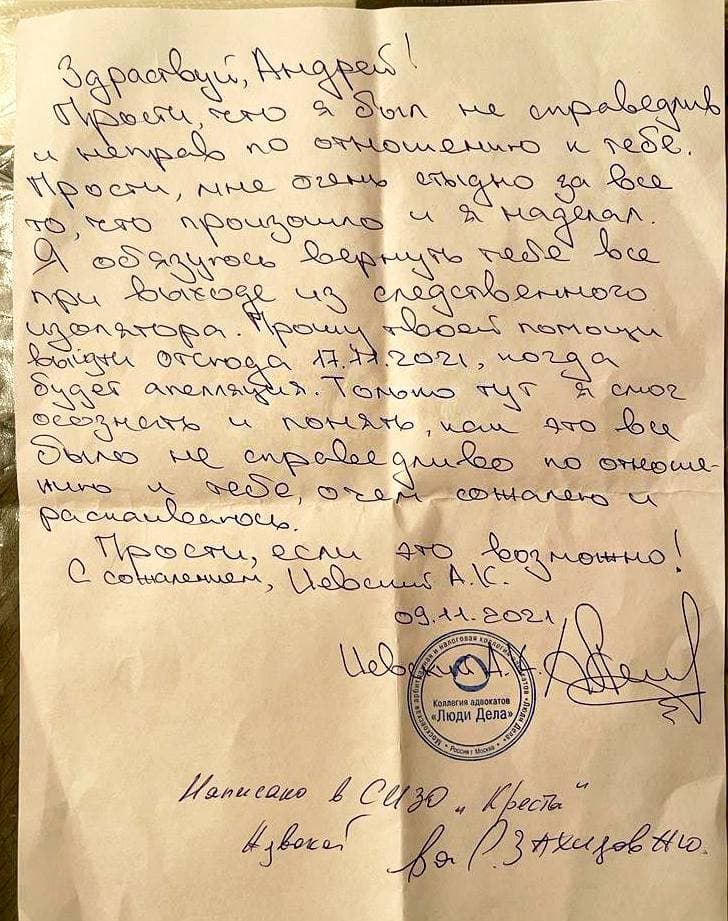 Здраствуй, Андрей!
Прости, что я был не справедлив
и неправ по отношению к тебе.
Прости, мне очень стыдно за все
то, что произошло и я наделал.
Я обязуюсь вернуть тебе все
при выходе из следственного
изолятора. Прошу твоей помощи
выйти отсюда 17.11.2021, когда
будет апелляция. Только тут я смог
осознать и понять, как это все
было не справедливо по отноше-
нию к тебе, о чем сожалею и
раскаиваюсь.
Прости, если это возможно!
С сожалением, Цевский А.К.
09.11.2021
Цевский А.К.
Московская арбитражная и налоговая коллегия адвокатов «Люди Дела»
• Россия г Москва •
Коллегия адвокатов
«Люди Дела»
Написано в СИЗО „Кресты"
Адвокат Захидов